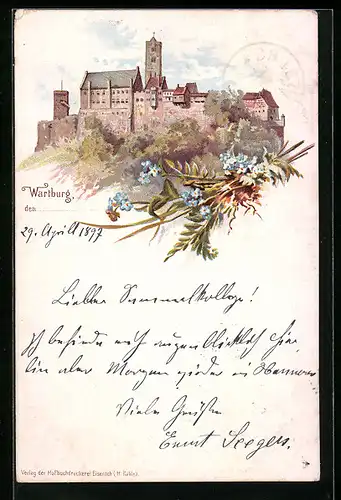 Wartburg,
den
29. April 1897
Lieber Sammelkollege!
Ich befinde mich augenblicklich hier,
bin aber Morgen wieder in Hannover
Viele Grüße
Ernst Seegers.
Verlag der Hofbuchdruckerei Eisenach (H. Kahle).